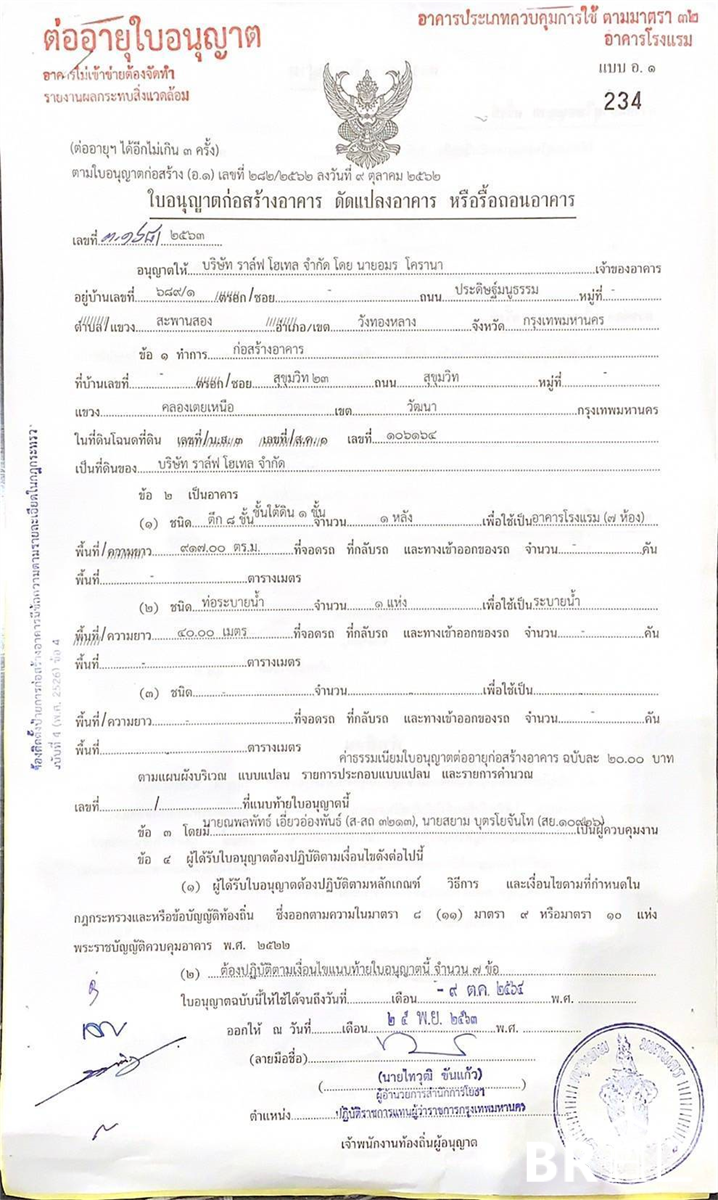 ต่ออายุใบอนุญาต
อาคารไม่เข้าข่ายต้องจัดทำ
รายงานผลกระทบสิ่งแวดล้อม
อาคารประเภทควบคุมการใช้ ตามมาตรา ๓๒
อาคารโรงแรม
แบบ อ. ๑
234
(ต่ออายุฯ ได้อีกไม่เกิน ๓ ครั้ง)
ตามใบอนุญาตก่อสร้าง (อ.๑) เลขที่ ๒๘๒/๒๕๖๒ ลงวันที่ ๙ ตุลาคม ๒๕๖๒
ใบอนุญาตก่อสร้างอาคาร ดัดแปลงอาคาร หรือรื้อถอนอาคาร
เลขที่ ๒๕๖๓
อนุญาตให้ บริษัท ราล์ฟ โฮเทล จำกัด โดย นายอมร โครานา เจ้าของอาคาร
อยู่บ้านเลขที่ ๖๘๙/๑ ตรอก/ซอย - ถนน ประดิษฐ์มนูธรรม หมู่ที่ -
ตำบล/แขวง สะพานสอง อำเภอ/เขต วังทองหลาง จังหวัด กรุงเทพมหานคร
ข้อ ๑ ทำการ ก่อสร้างอาคาร
ที่บ้านเลขที่ - ตรอก/ซอย สุขุมวิท ๒๓ ถนน สุขุมวิท หมู่ที่ -
แขวง คลองเตยเหนือ เขต วัฒนา กรุงเทพมหานคร
ในที่ดินโฉนดที่ดิน เลขที่/น.ส. ๓ เลขที่/ส.ค. ๑ เลขที่ ๑๐๖๑๖๔
เป็นที่ดินของ บริษัท ราล์ฟ โฮเทล จำกัด
ข้อ ๒ เป็นอาคาร
(๑) ชนิด ตึก ๘ ชั้น ชั้นใต้ดิน ๑ ชั้น จำนวน ๑ หลัง เพื่อใช้เป็น อาคารโรงแรม (๗ ห้อง)
พื้นที่/ความยาว ๙๑๗.๐๐ ตร.ม. ที่จอดรถ ที่กลับรถ และทางเข้าออกของรถ จำนวน - คัน
พื้นที่ - ตารางเมตร
(๒) ชนิด ท่อระบายน้ำ จำนวน ๑ แห่ง เพื่อใช้เป็น ระบายน้ำ
พื้นที่/ความยาว ๔๐.๐๐ เมตร ที่จอดรถ ที่กลับรถ และทางเข้าออกของรถ จำนวน - คัน
พื้นที่ - ตารางเมตร
(๓) ชนิด - จำนวน - เพื่อใช้เป็น -
พื้นที่/ความยาว - ที่จอดรถ ที่กลับรถ และทางเข้าออกของรถ จำนวน - คัน
พื้นที่ - ตารางเมตร
ค่าธรรมเนียมใบอนุญาตต่ออายุก่อสร้างอาคาร ฉบับละ ๒๐.๐๐ บาท
ตามแผนผังบริเวณ แบบแปลน รายการประกอบแบบแปลน และรายการคำนวณ
เลขที่ / ที่แนบท้ายใบอนุญาตนี้
ข้อ ๓ โดยมี นายณพลพัทธ์ เอี่ยวอ่องพันธ์ (ส-สถ ๓๒๑๓), นายสยาม บุตรโยจันโท (สย.๑๐๙๒๖) เป็นผู้ควบคุมงาน
ข้อ ๔ ผู้ได้รับใบอนุญาตต้องปฏิบัติตามเงื่อนไขดังต่อไปนี้
(๑) ผู้ได้รับใบอนุญาตต้องปฏิบัติตามหลักเกณฑ์ วิธีการ และเงื่อนไขตามที่กำหนดใน
กฎกระทรวงและหรือข้อบัญญัติท้องถิ่น ซึ่งออกตามความในมาตรา ๘ (๑๑) มาตรา ๙ หรือมาตรา ๑๐ แห่ง
พระราชบัญญัติควบคุมอาคาร พ.ศ. ๒๕๒๒
(๒) ต้องปฏิบัติตามเงื่อนไขแนบท้ายใบอนุญาตนี้ จำนวน ๗ ข้อ
ใบอนุญาตฉบับนี้ให้ใช้ได้จนถึงวันที่ เดือน - ๙ ต.ค. ๒๕๖๔ พ.ศ.
ออกให้ ณ วันที่ เดือน ๒๕ พ.ย. ๒๕๖๓ พ.ศ.
(ลายมือชื่อ)
(นายไทวุฒิ ขันแก้ว)
ผู้อำนวยการสำนักการโยธา
ตำแหน่ง ปฏิบัติราชการแทนผู้ว่าราชการกรุงเทพมหานคร
เจ้าพนักงานท้องถิ่นผู้อนุญาต
ต้องติดตั้งป้ายการก่อสร้างอาคารมีข้อความตามรายละเอียดในกฎกระทรวง
ฉบับที่ 4 (พ.ศ. 2526) ข้อ 4